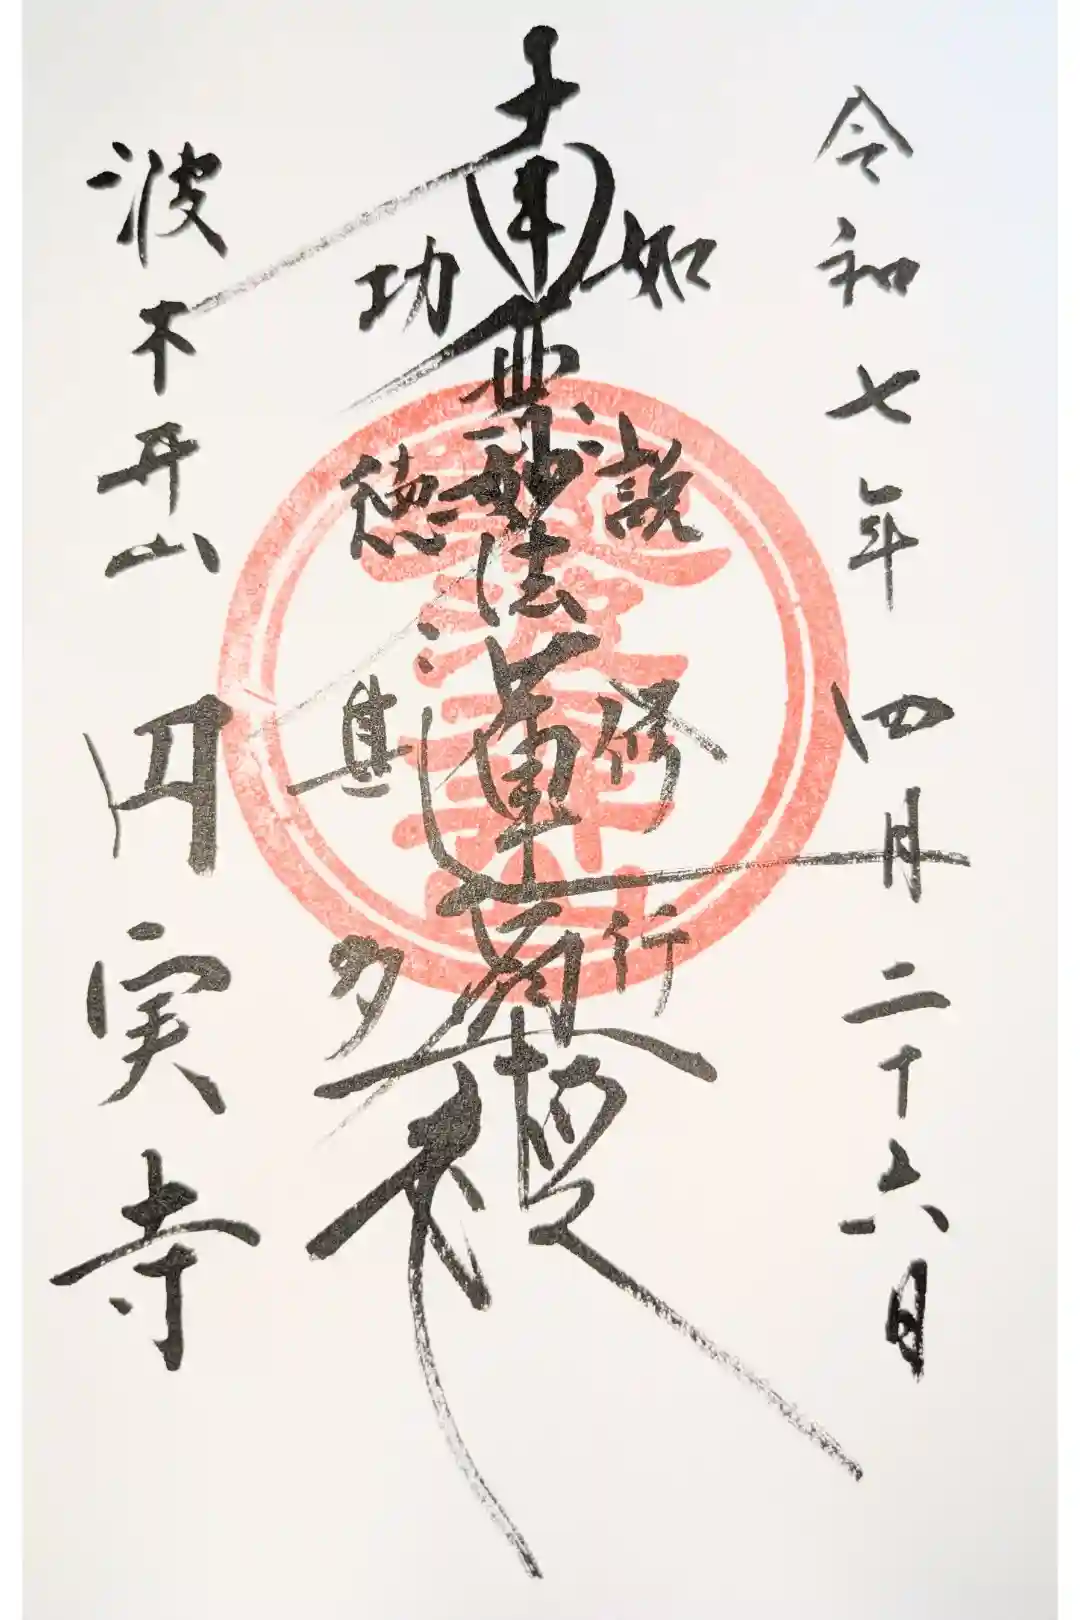 令和七年四月二十六日
如説修行
南無妙法蓮華經
功徳甚多
波木井山
円実寺